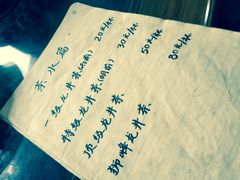 茶水篇
一级龙井茶(雨前) 20元/杯
特级龙井茶(明前) 30元/杯
顶级龙井茶 50元/杯
狮峰龙井茶 80元/杯